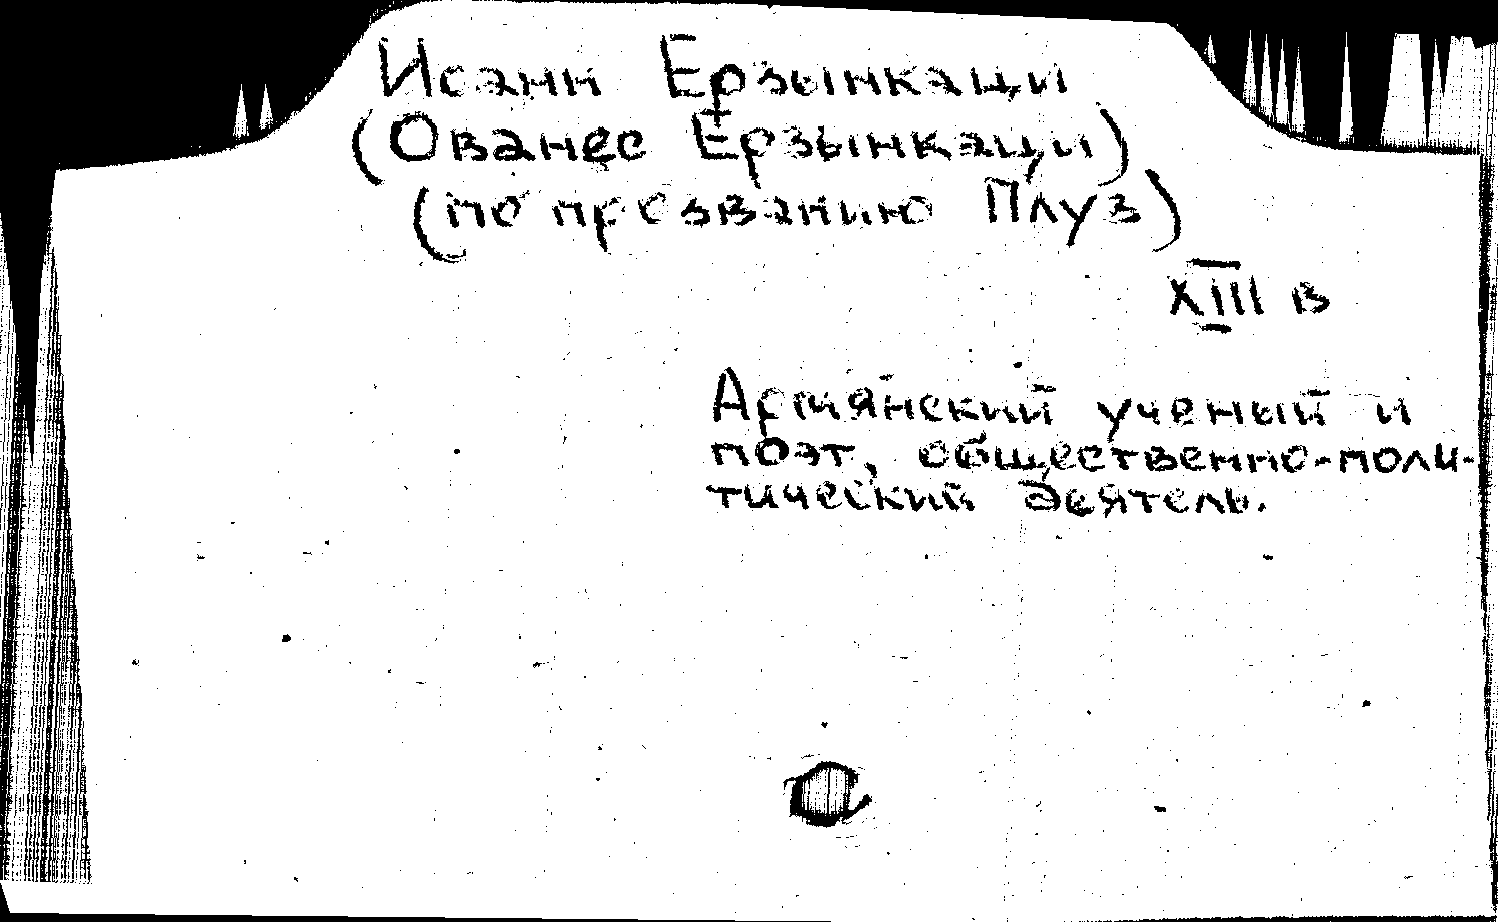 Иоанн Ерзынкаци
(Ованес Ерзынкаци)
(по прозванию Плуз)
XIII в
Армянский ученый и
поэт, общественно-поли-
тический деятель.